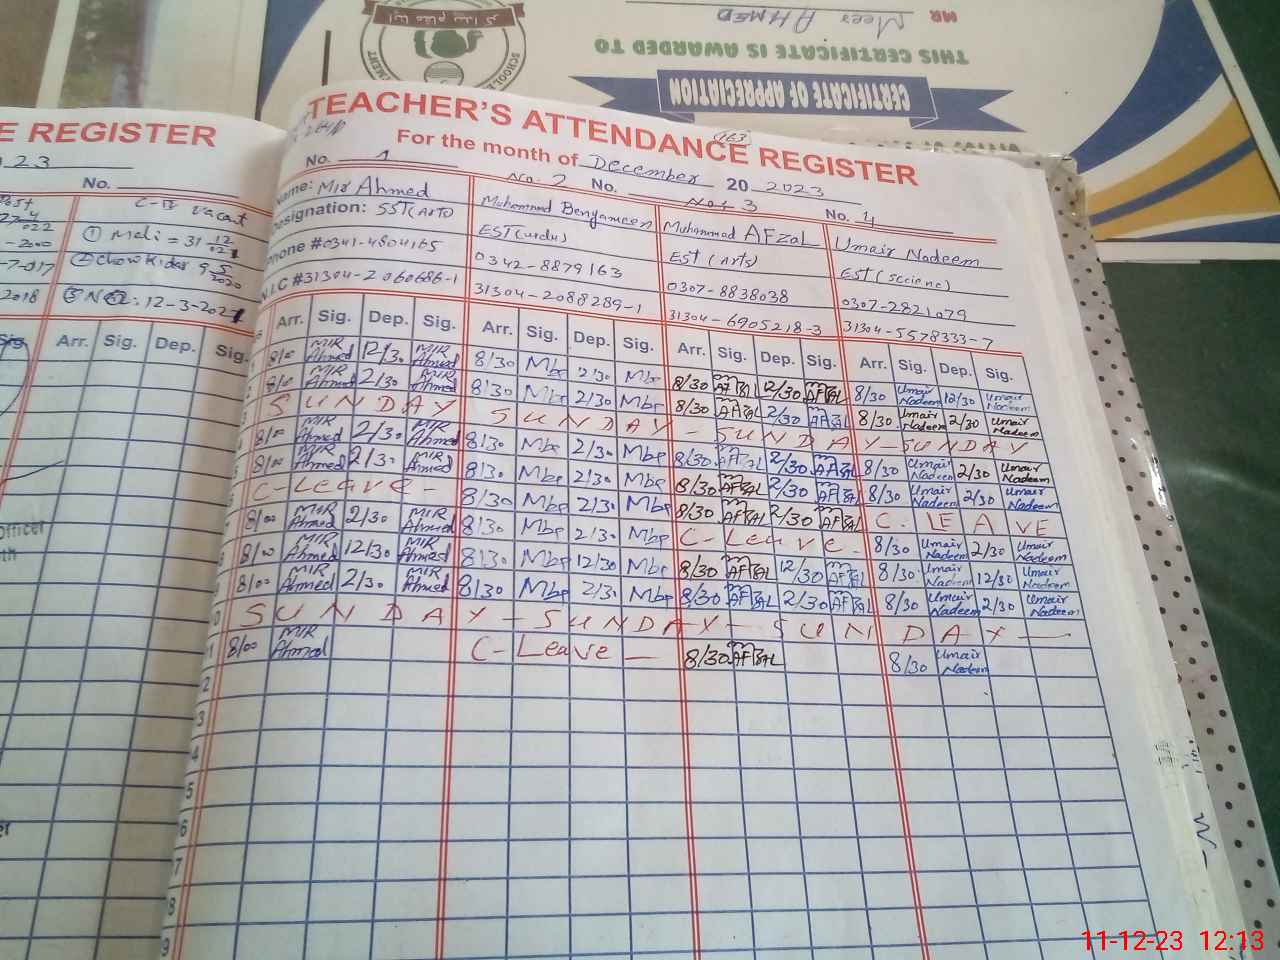 MR Meer AHMED
THIS CERTIFICATE IS AWARDED TO
CERTIFICATE OF APPRECIATION
E REGISTER
23
No.
C-IV vacant
① Mali = 31
② Chowkidar 9-5-2020
③ 12-3-202
2018
Arr. Sig. Dep. Sig.
TEACHER'S ATTENDANCE REGISTER
163
For the month of December 20 2023
No. 1 No. 2 No. No. 3 No. 4
Name: Mir Ahmed Muhammad Benyameen Muhammad AFzaL Umair Nadeem
Designation: SST(Arts) EST(urdu) EST(Arts) EST(Sciene)
Phone #0341-4804165 0342-8879163 0307-8838038 0307-2821079
N.I.C #31304-2060686-1 31304-2088289-1 31304-6905218-3 31304-5578333-7
Arr. Sig. Dep. Sig. Arr. Sig. Dep. Sig. Arr. Sig. Dep. Sig. Arr. Sig. Dep. Sig.
8/00 MIR Ahmed 12/30 MIR Ahmed 8/30 Mbe 2/30 Mbe 8/30 AFZAL 12/30 AFZAL 8/30 Umair Nadeem 12/30 Umair Nadeem
8/00 MIR Ahmed 2/30 MIR Ahmed 8/30 Mbe 2/30 Mbe 8/30 AFZAL 2/30 AFZAL 8/30 Umair Nadeem 2/30 Umair Nadeem
SUNDAY SUNDAY - SUNDAY - SUNDAY
8/00 MIR Ahmed 2/30 MIR Ahmed 8/30 Mbe 2/30 Mbe 8/30 AFZAL 2/30 AFZAL 8/30 Umair Nadeem 2/30 Umair Nadeem
8/00 MIR Ahmed 2/30 MIR Ahmed 8/30 Mbe 2/30 Mbe 8/30 AFZAL 2/30 AFZAL 8/30 Umair Nadeem 2/30 Umair Nadeem
C-Leave - 8/30 Mbe 2/30 Mbe 8/30 AFZAL 2/30 AFZAL C. LEAVE
8/00 MIR Ahmed 2/30 MIR Ahmed 8/30 Mbe 2/30 Mbe C-Leave - 8/30 Umair Nadeem 2/30 Umair Nadeem
8/00 MIR Ahmed 12/30 MIR Ahmed 8/30 Mbe 12/30 Mbe 8/30 AFZAL 12/30 AFZAL 8/30 Umair Nadeem 12/30 Umair Nadeem
8/00 MIR Ahmed 2/30 MIR Ahmed 8/30 Mbe 2/30 Mbe 8/30 AFZAL 2/30 AFZAL 8/30 Umair Nadeem 2/30 Umair Nadeem
SUNDAY - SUNDAY - SUNDAY -
8/00 MIR Ahmed C-Leave - 8/30 AFZAL 8/30 Umair Nadeem
2
3
4
5
6
7
8
9
11-12-23 12:13